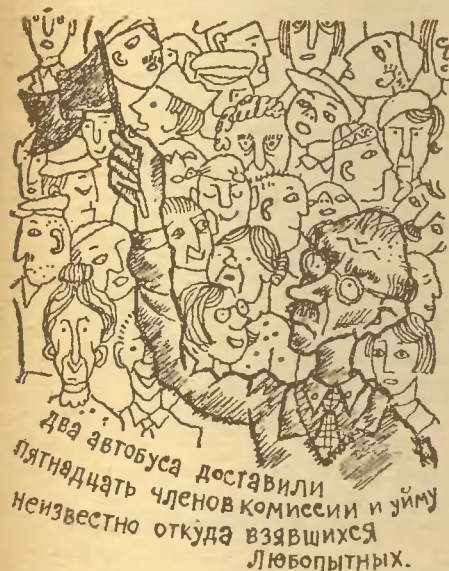 два автобуса доставили
пятнадцать членов комиссии и уйму
неизвестно откуда взявшихся
любопытных.